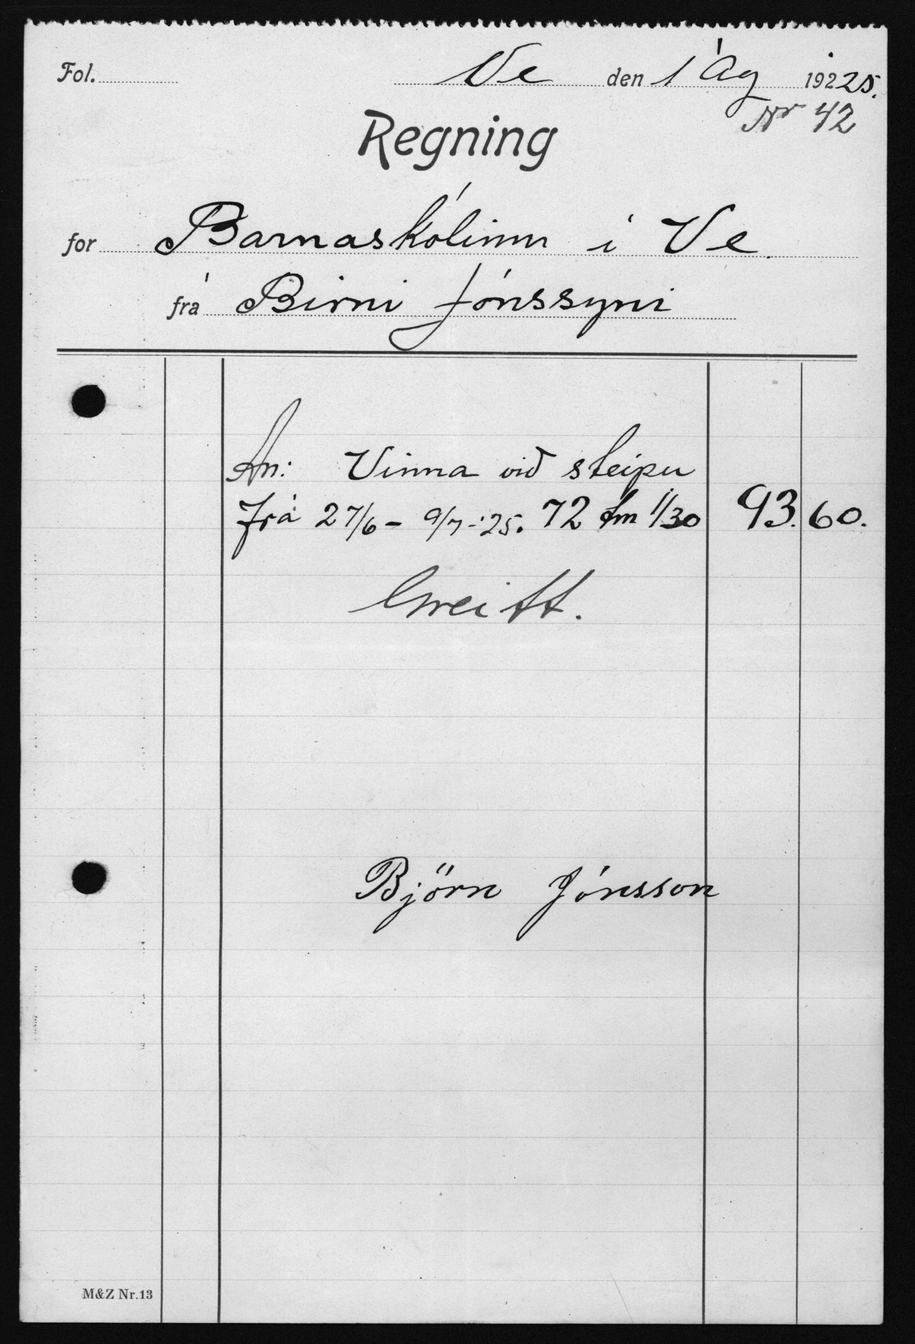 Fol. Ve den 1 Ág 192 25.
Nr 42
Regning
for Barnaskólinn í Ve
frá Birni Jónssyni
An: Vinna við steipu
frá 27/6 - 9/7 - '25. 72 tím 1/30 93.60.
Greitt.
Björn Jónsson
M&Z Nr. 13